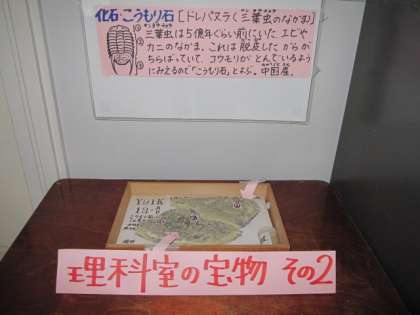 化石・こうもり石 [ドレパヌラ(三葉虫のなかま)]
三葉虫は5億年くらい前にいた、エビや
カニのなかま。これは脱皮したからが
ちらばっていて、コウモリがとんでいるよう
にみえるので「こうもり石」とよぶ。中国産。
理科室の宝物 その2